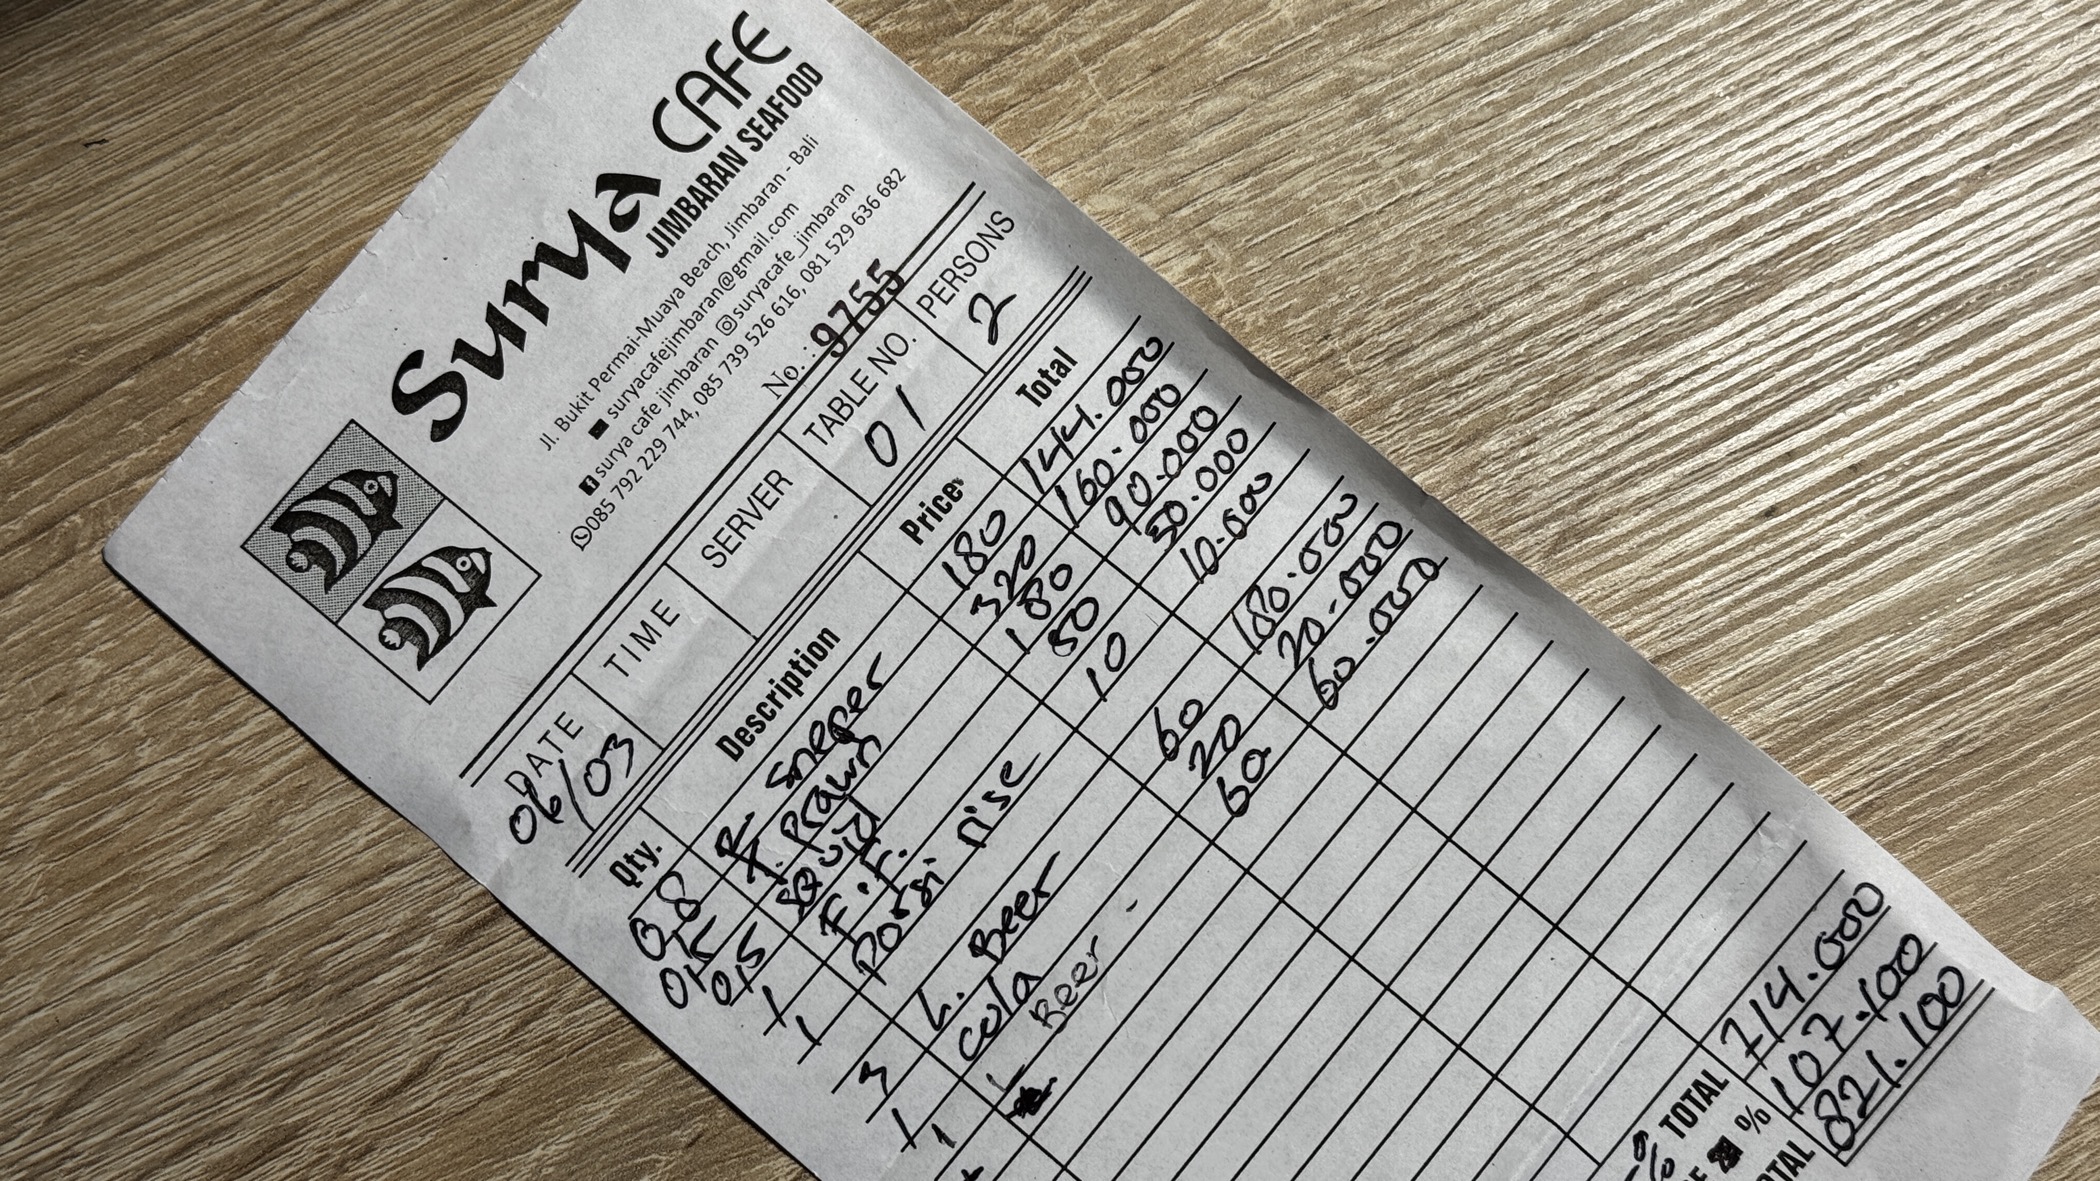 Surya CAFE
JIMBARAN SEAFOOD
Jl. Bukit Permai-Muaya Beach, Jimbaran - Bali
suryacafejimbaran@gmail.com
surya cafe jimbaran suryacafe_jimbaran
085 792 229 744, 085 739 526 616, 081 529 636 682
No.: 9755
DATE TIME SERVER TABLE NO. PERSONS
06/03 01 2
Qty. Description Price Total
0,8 R Sneper 180 144.000
0,5 T. Prawn 320 160.000
0,5 SQUID 180 90.000
1 F.F. 50 50.000
1 Porsi rise 10 10.000
3 L. Beer 60 180.000
1 cola 20 20.000
1 L Beer 60 60.000
TOTAL 714.000
% 107.100
OTAL 821.100